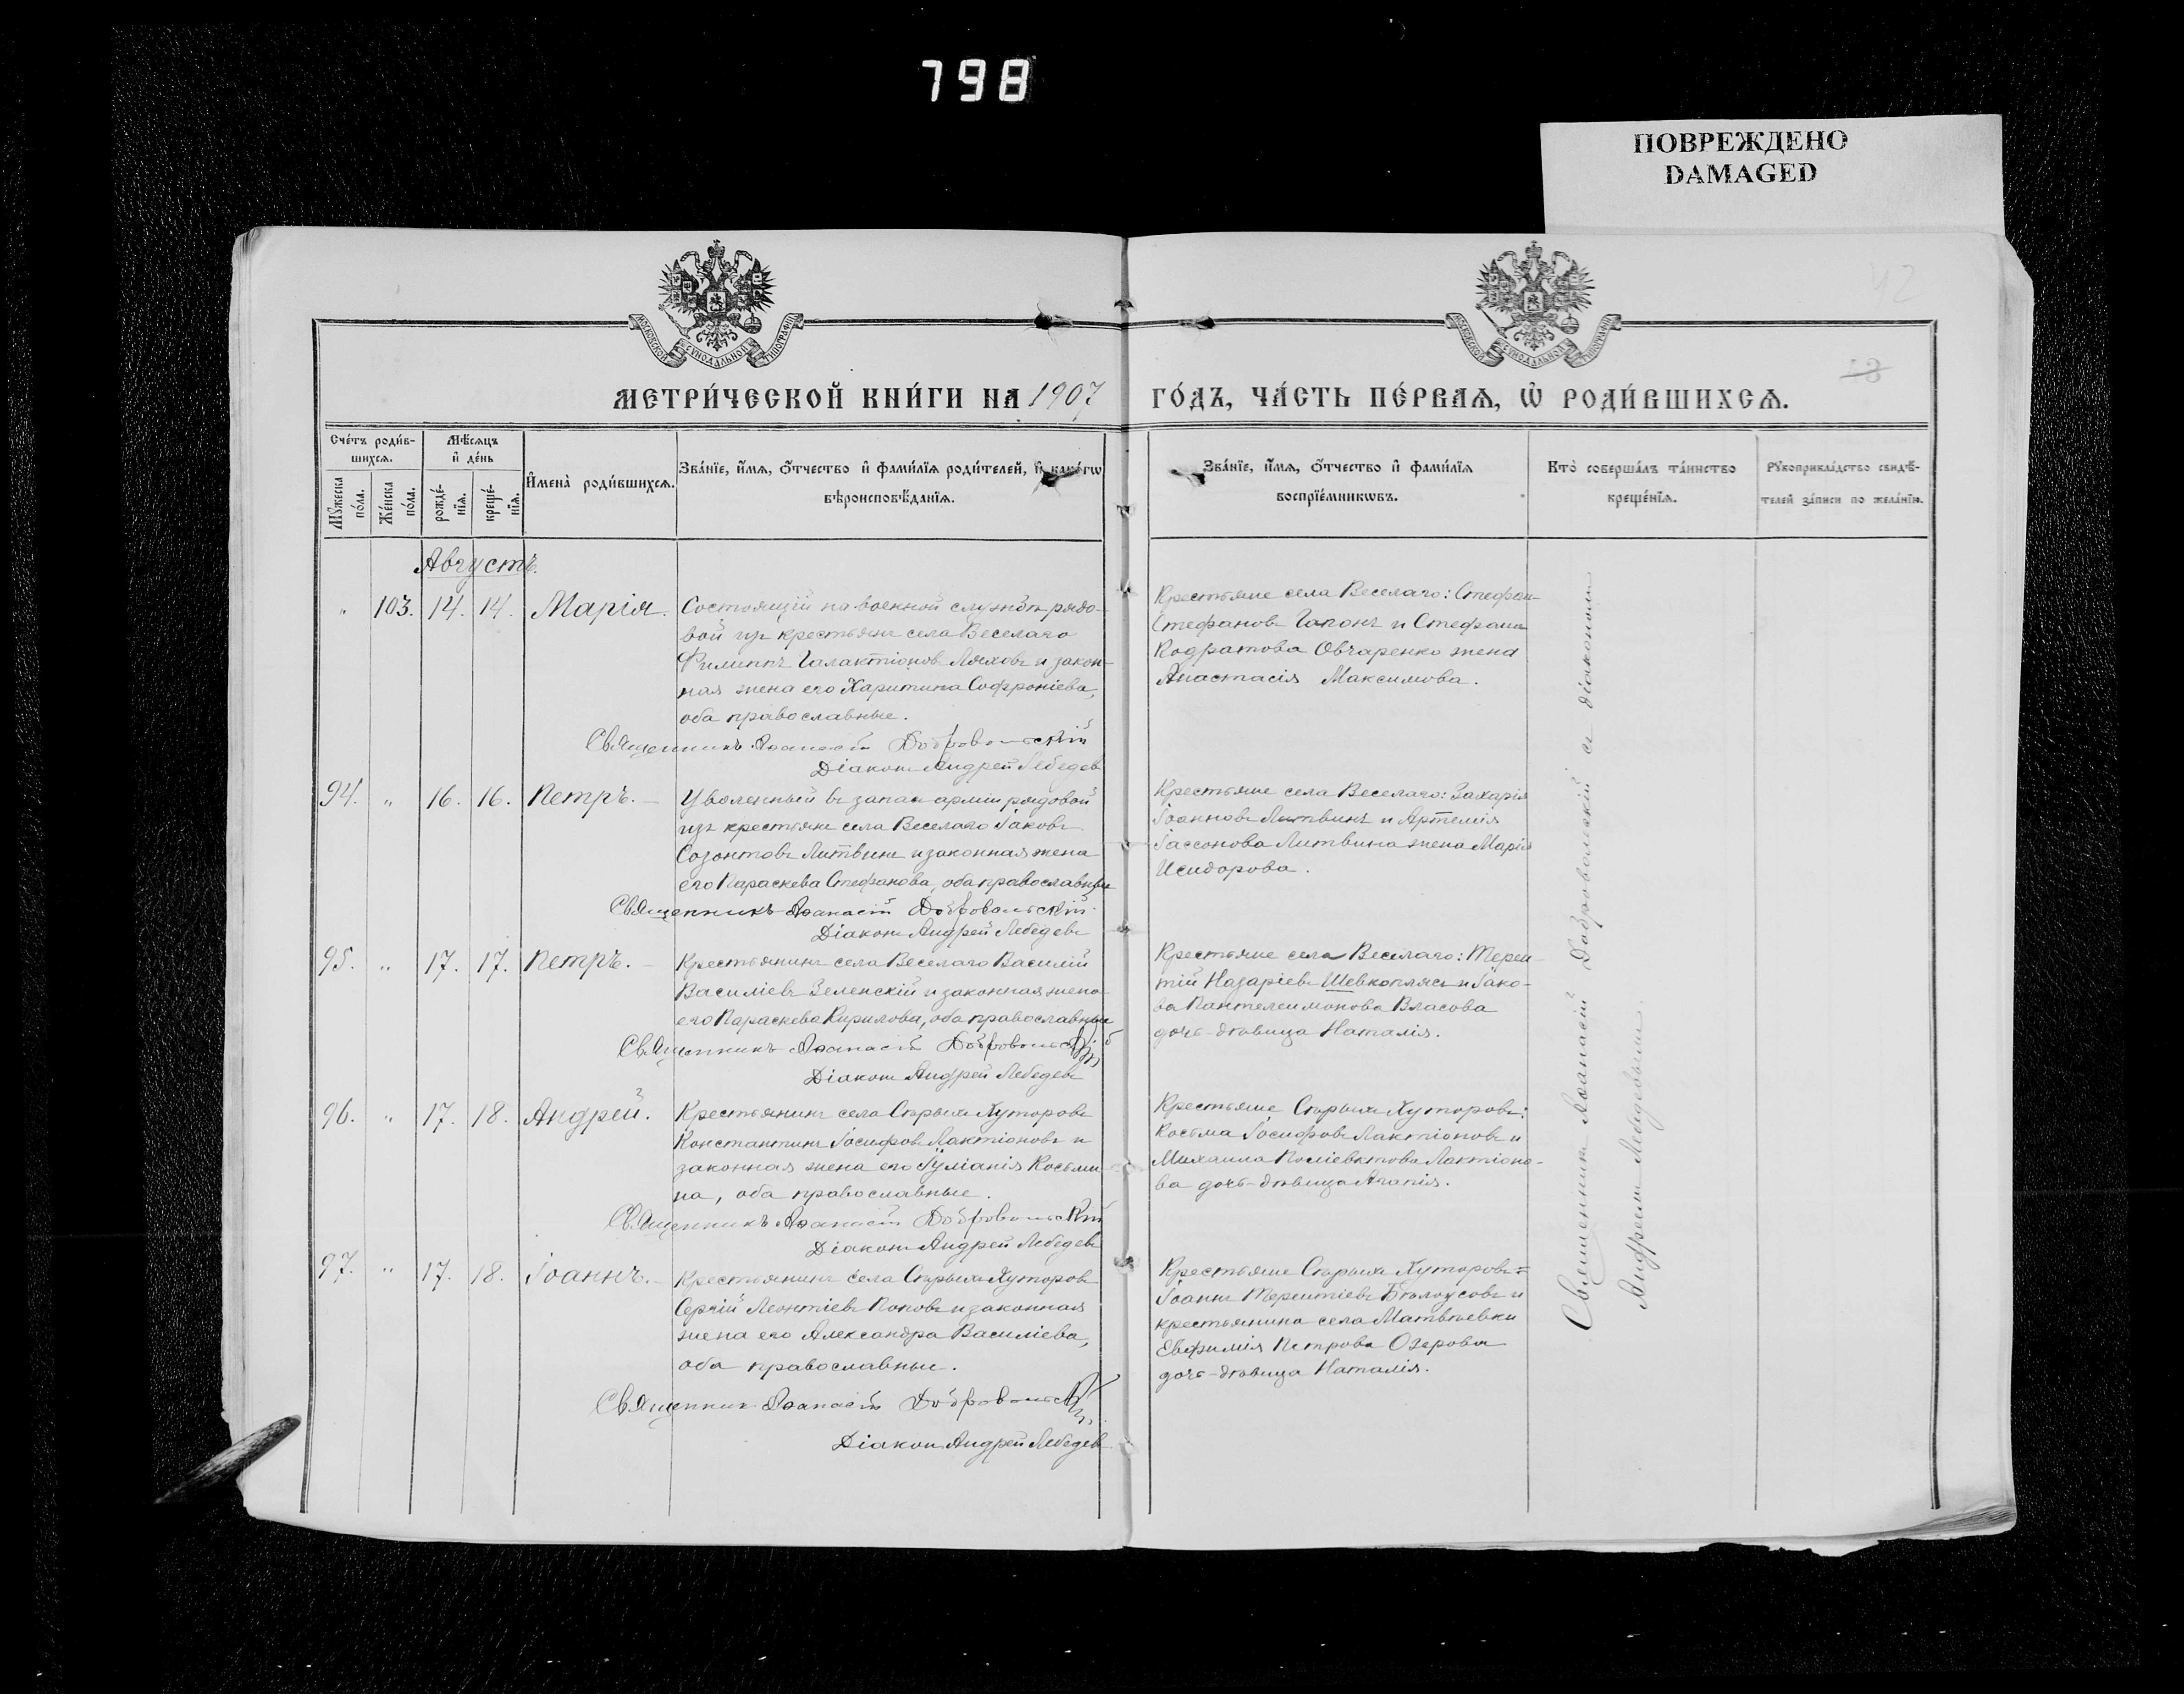 798
ПОВРЕЖДЕНО
DAMAGED
42
МОСКОВСКОЙ СѴНОДАЛЬНОЙ ТИПОГРАФІИ
МОСКОВСКОЙ СѴНОДАЛЬНОЙ ТИПОГРАФІИ
МЕТРИ́ЧЕСКОЙ КНИ́ГИ НА 1907 ГО́ДЪ, ЧА́СТЬ ПЕ́РВАѦ, Ѡ҆ РОДИ́ВШИХСѦ.
Сче́тъ роди́в-
шихсѧ.
Мꙋ́жеска
по́ла.
Же́нска
по́ла.
Мѣ́сѧцъ
и҆ де́нь
рожде́-
нїѧ.
креще́-
нїѧ.
И҆мена̀ роди́вшихсѧ.
Зва́нїе, и҆́мѧ, ѻ҆́тчество и҆ фами́лїѧ роди́телей, и҆ како́гѡ
вѣроисповѣ́данїѧ.
Зва́нїе, и҆́мѧ, ѻ҆́тчество и҆ фами́лїѧ
воспрїе́мникѡвъ.
Кто̀ соверша́лъ та́инство
креще́нїѧ.
Рꙋкоприкла́дство свидѣ́-
телей за́писи по жела́нїю.
Августъ.
" 103. 14. 14. Марія.
Состоящій на военной службѣ рядо-
вой изъ крестьянъ села Веселаго
Филиппъ Галактіоновъ Ляховъ и закон-
ная жена его Харитина Софроніева,
оба православные.
Священникъ Аѳанасій Добровольскій
Діаконъ Андрей Лебедевъ
Крестьяне села Веселаго: Стефанъ
Стефановъ Гапонъ и Стефана
Кодратова Овчаренко жена
Анастасія Максимова.
94. " 16. 16. Петръ.
Уволенный въ запасъ арміи рядовой
изъ крестьянъ села Веселаго Іаковъ
Созонтовъ Литвинъ и законная жена
его Параскева Стефанова, оба православные
Священникъ Аѳанасій Добровольскій
Діаконъ Андрей Лебедевъ
Крестьяне села Веселаго: Захарія
Іоанновъ Литвинъ и Артемія
Іассонова Литвина жена Марія
Исидорова.
95. " 17. 17. Петръ.
Крестьянинъ села Веселаго Василій
Василіевъ Зеленскій и законная жена
его Параскева Кирилова, оба православные
Священникъ Аѳанасій Добровольскій
Діаконъ Андрей Лебедевъ
Крестьяне села Веселаго: Терен-
тій Назаріевъ Шевкоплясъ и Іако-
ва Пантелеимонова Власова
дочь-дѣвица Наталія.
96. " 17. 18. Андрей.
Крестьянинъ села Старыхъ Хуторовъ
Константинъ Іосифовъ Лактіоновъ и
законная жена его Іуліанія Косьми-
на, оба православные.
Священникъ Аѳанасій Добровольскій
Діаконъ Андрей Лебедевъ
Крестьяне Старыхъ Хуторовъ:
Косьма Іосифовъ Лактіоновъ и
Михаила Поліевктова Лактіоно-
ва дочь-дѣвица Агапія.
97. " 17. 18. Іоаннъ.
Крестьянинъ села Старыхъ Хуторовъ
Сергій Леонтіевъ Поповъ и законная
жена его Александра Василіева,
оба православные.
Священникъ Аѳанасій Добровольскій
Діаконъ Андрей Лебедевъ
Крестьяне Старыхъ Хуторовъ:
Іоаннъ Терентіевъ Бѣлоусовъ и
крестьянина села Матвѣевки
Евфимія Петрова Озерова
дочь-дѣвица Наталія.
Священникъ Аѳанасій Добровольскій съ діакономъ
Андреемъ Лебедевымъ.